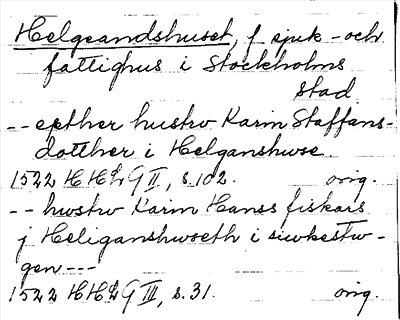 Helgeandshuset, f sjuk- och
fattighus i Stockholms
stad
-- epther hustrv Karin Staffans-
dotther i Helganshwse.
1522 HHLG II, s. 102. orig.
-- hwstrv Karin Hanss fiskars
j Heliganshwseth i siwkestw-
gen ---
1522 HHLG III, s. 31. orig.